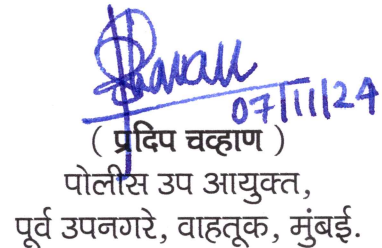 Chavan
07/11/24
( प्रदिप चव्हाण )
पोलीस उप आयुक्त,
पूर्व उपनगरे, वाहतूक, मुंबई.